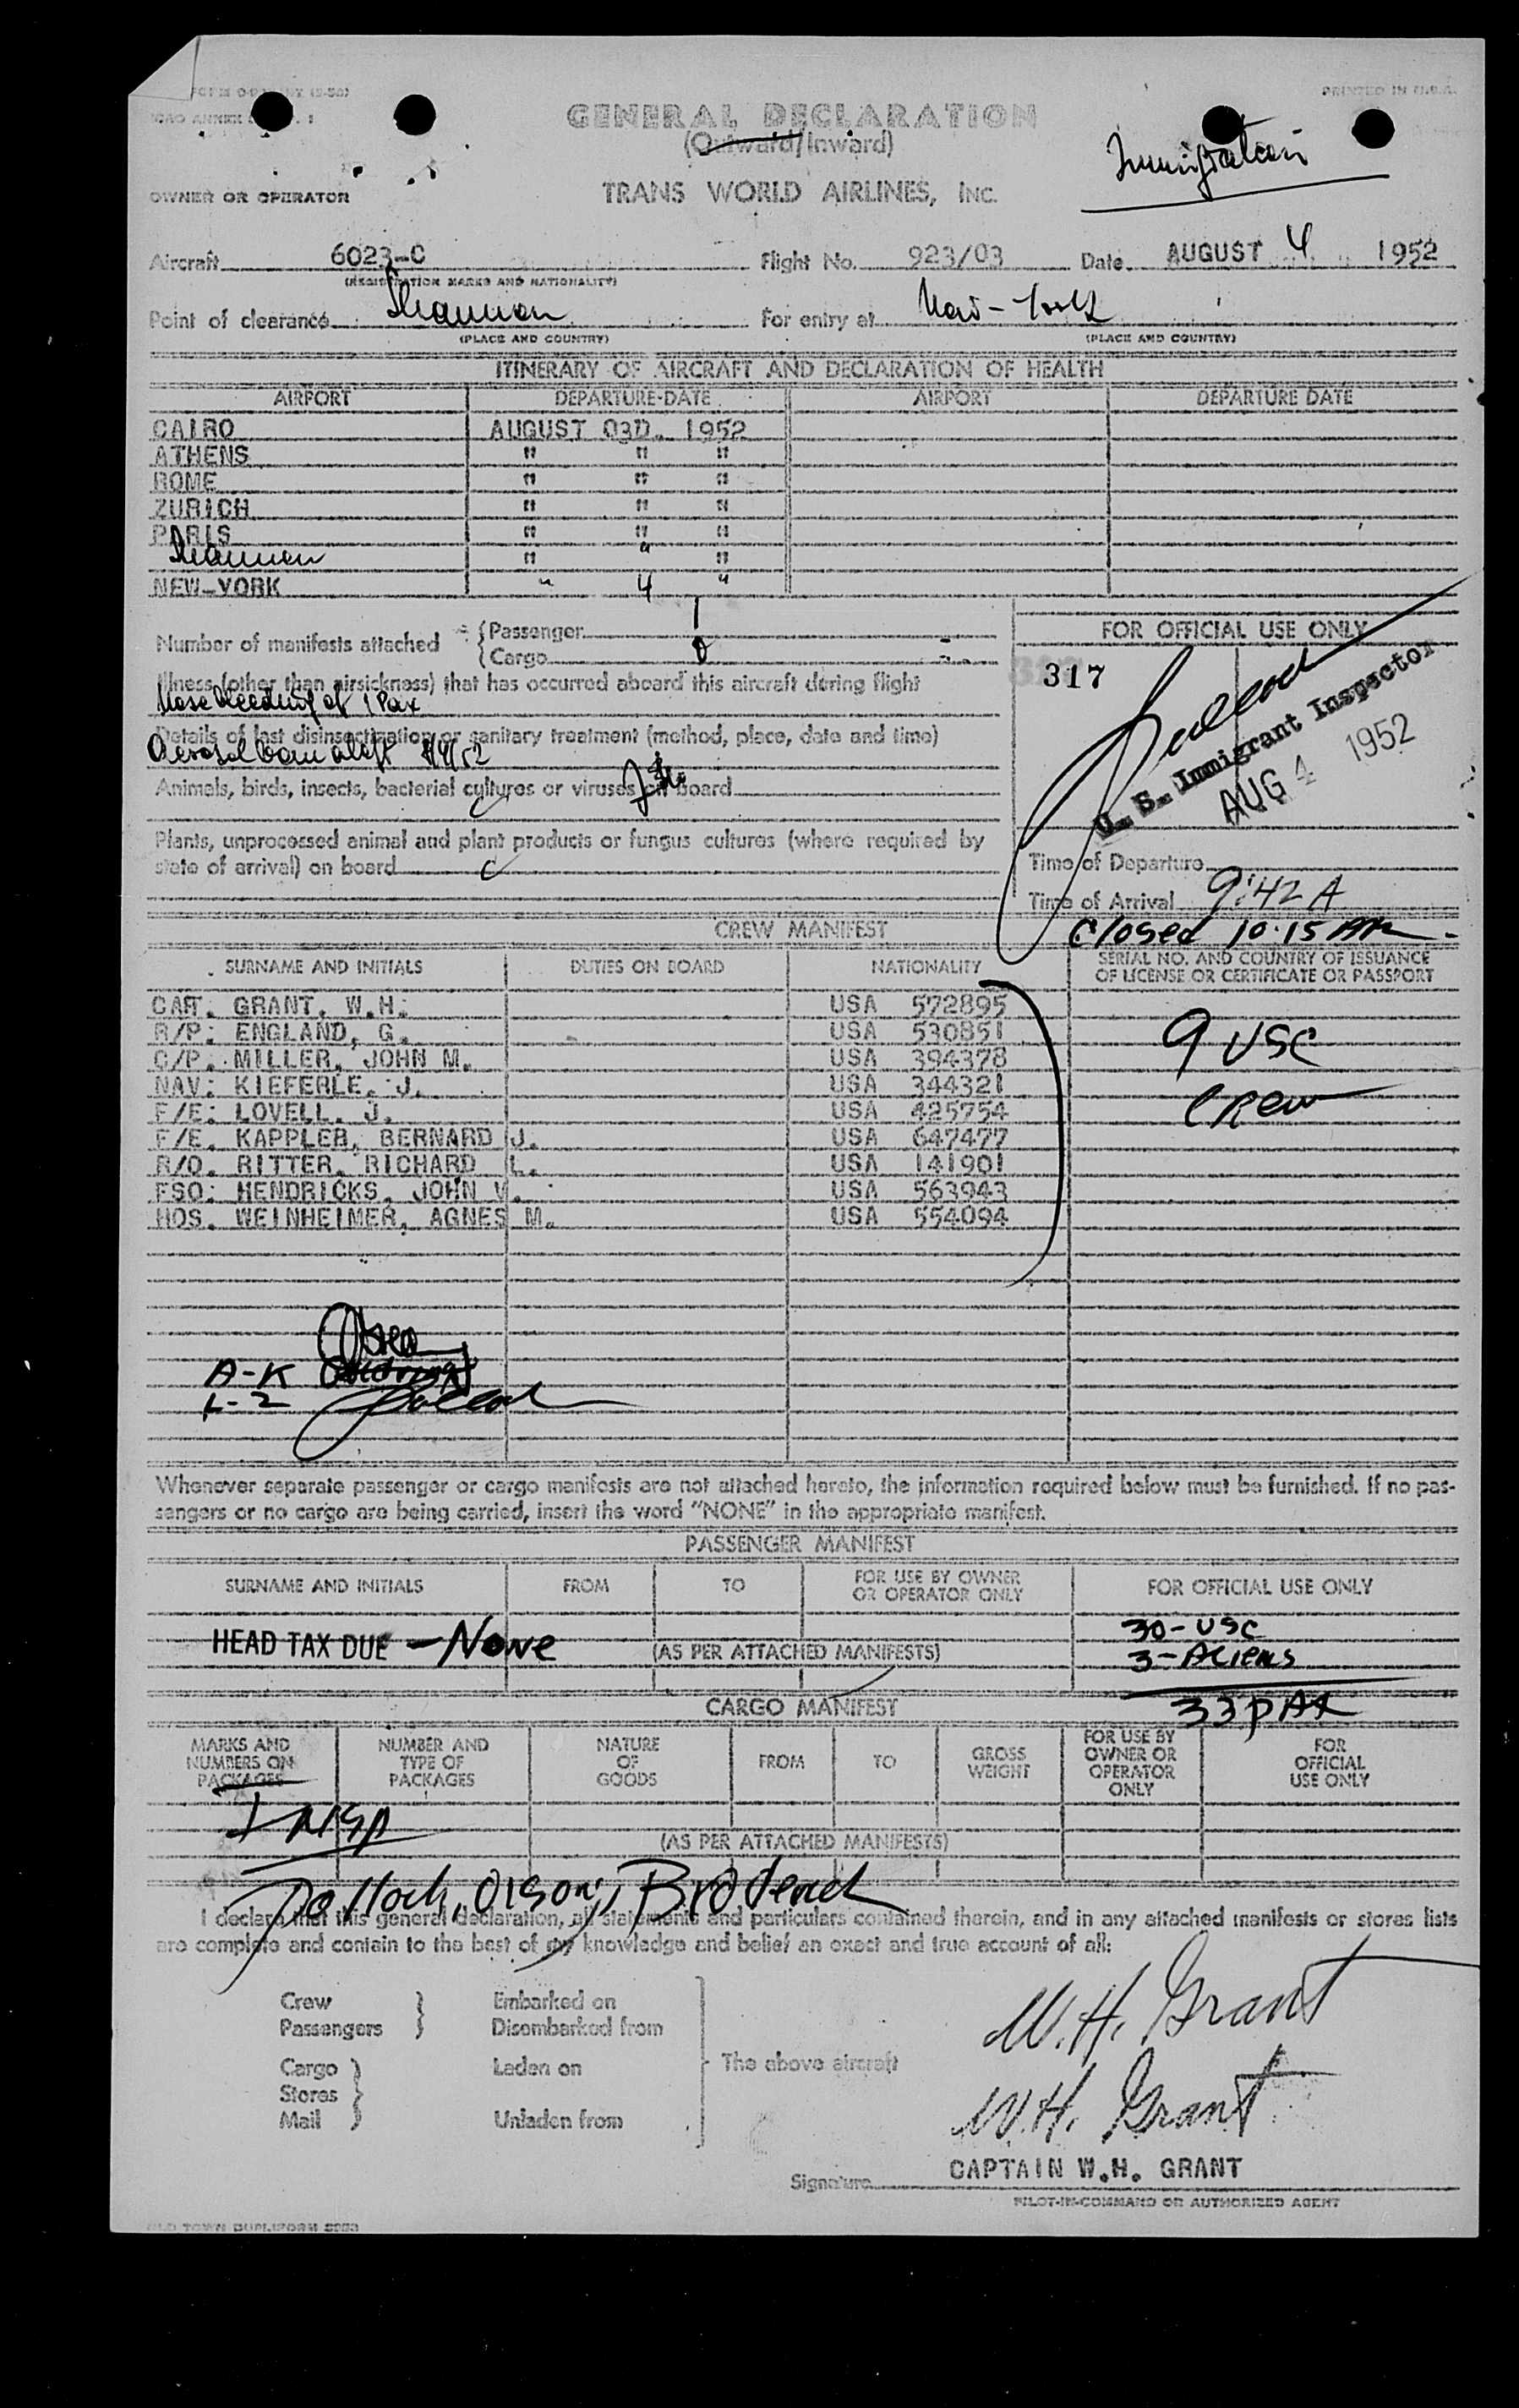 PRINTED IN U.S.A.
GENERAL DECLARATION
(Outward/Inward)
Immigration
OWNER OR OPERATOR
TRANS WORLD AIRLINES, INC.
Aircraft 6023-C Flight No. 923/03 Date AUGUST 4 1952
(REGISTRATION MARKS AND NATIONALITY)
Point of clearance Shannon For entry at New-York
(PLACE AND COUNTRY) (PLACE AND COUNTRY)
ITINERARY OF AIRCRAFT AND DECLARATION OF HEALTH
AIRPORT DEPARTURE-DATE AIRPORT DEPARTURE DATE
CAIRO AUGUST 03D. 1952
ATHENS " " "
ROME " " "
ZURICH " " "
PARIS " " "
Shannon " " "
NEW-YORK " 4 "
Number of manifests attached { Passenger 1
{ Cargo 0
FOR OFFICIAL USE ONLY
317
Illness (other than airsickness) that has occurred aboard this aircraft during flight
Nose bleeding of 1 Pax
Details of last disinsectization or sanitary treatment (method, place, date and time)
Aerosol 8/4/52
U. S. Immigrant Inspector
AUG 4 1952
Animals, birds, insects, bacterial cultures or viruses on board
Plants, unprocessed animal and plant products or fungus cultures (where required by
state of arrival) on board
Time of Departure
Time of Arrival 9:42 A
Closed 10:15 AM
CREW MANIFEST
SURNAME AND INITIALS DUTIES ON BOARD NATIONALITY SERIAL NO. AND COUNTRY OF ISSUANCE
OF LICENSE OR CERTIFICATE OR PASSPORT
CAPT. GRANT, W.H. USA 572895
R/P: ENGLAND, G. USA 530851
C/P. MILLER, JOHN M. USA 394378
NAV: KIEFERLE, J. USA 344321
F/E: LOVELL, J. USA 425754
F/E. KAPPLER, BERNARD J. USA 647477
R/O. RITTER, RICHARD L. USA 141901
FSO: HENDRICKS, JOHN V. USA 563943
HOS. WEINHEIMER, AGNES M. USA 554094
9 USC
Crew
A-K
L-Z
Whenever separate passenger or cargo manifests are not attached hereto, the information required below must be furnished. If no pas-
sengers or no cargo are being carried, insert the word "NONE" in the appropriate manifest.
PASSENGER MANIFEST
SURNAME AND INITIALS FROM TO FOR USE BY OWNER
OR OPERATOR ONLY FOR OFFICIAL USE ONLY
HEAD TAX DUE - None (AS PER ATTACHED MANIFESTS)
30-USC
3-Aliens
33 PAX
CARGO MANIFEST
MARKS AND
NUMBERS ON
PACKAGES
NUMBER AND
TYPE OF
PACKAGES
NATURE
OF
GOODS
FROM TO
GROSS
WEIGHT
FOR USE BY
OWNER OR
OPERATOR
ONLY
FOR
OFFICIAL
USE ONLY
(AS PER ATTACHED MANIFESTS)
Pollock, Olson, Broderick
I declare that this general declaration, all statements and particulars contained therein, and in any attached manifests or stores lists
are complete and contain to the best of my knowledge and belief an exact and true account of all:
Crew Embarked on
Passengers Disembarked from
Cargo Laden on The above aircraft
Stores
Mail Unladen from
W.H. Grant
W.H. Grant
CAPTAIN W.H. GRANT
Signature
PILOT-IN-COMMAND OR AUTHORIZED AGENT